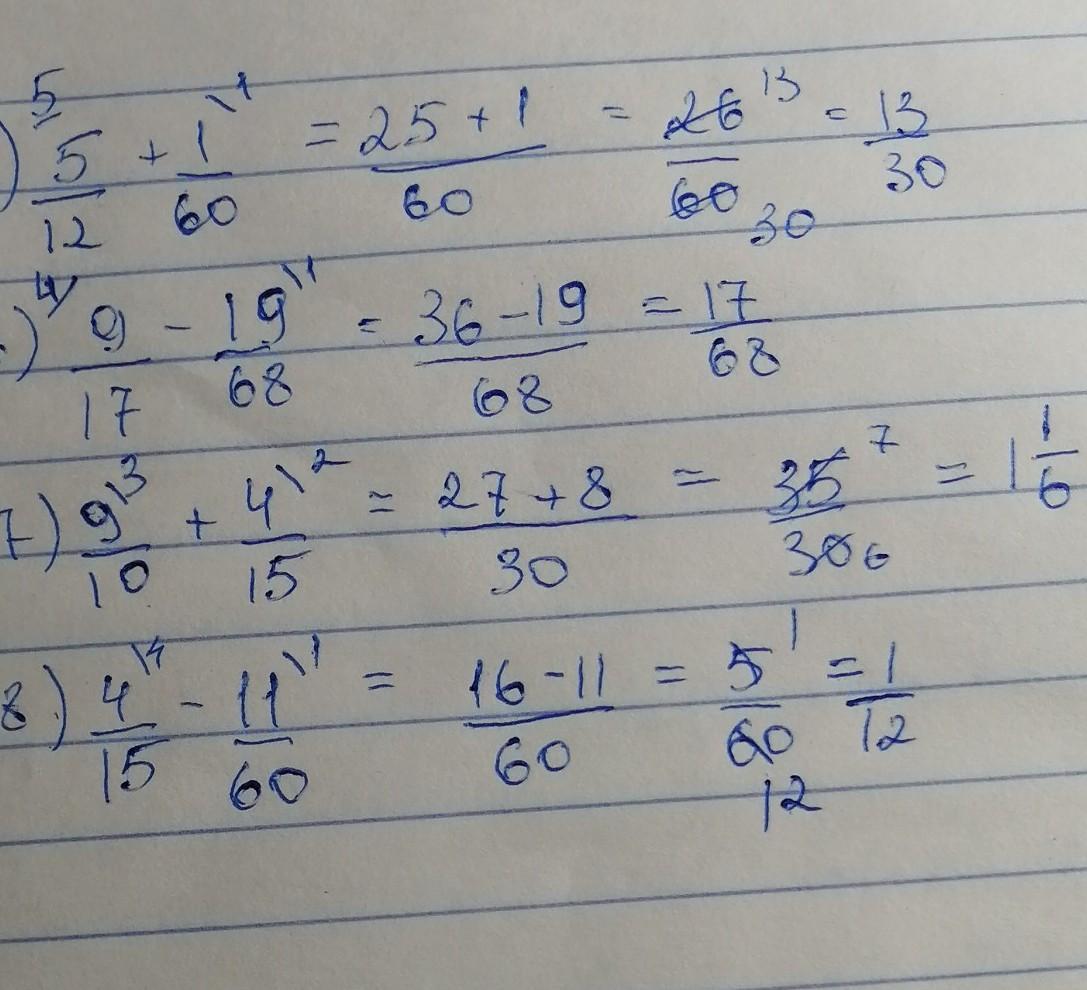 ) 5/12 ^5 + 1/60 \1 = 25+1/60 = 26/60 ^13 30 = 13/30
) 4/ 9/17 - 19/68 \1 = 36-19/68 = 17/68
7) 9/10 \3 + 4/15 \2 = 27+8/30 = 35/30 ^7 6 = 1 1/6
8) 4/15 \4 - 11/60 \1 = 16-11/60 = 5/60 ^1 12 = 1/12